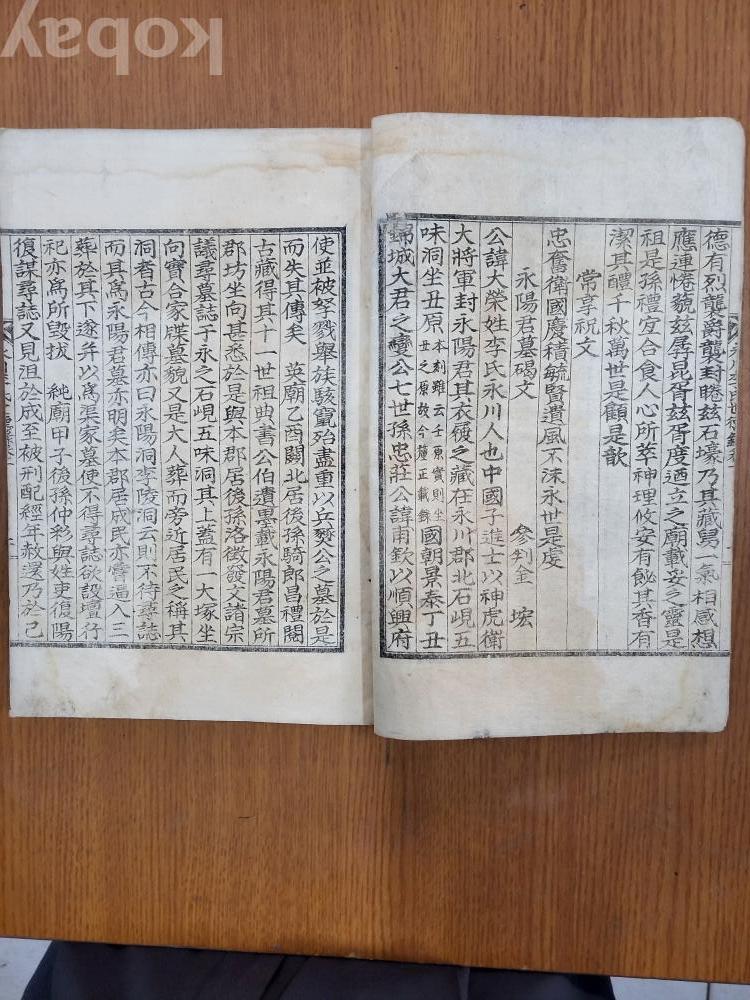 德有烈襲爵襲封睠玆石壕乃其藏舃一氣相感想
應連惓藐玆孱昆胥玆胥度遒立之廟載妥之靈是
祖是孫禮宜合食人心所萃神理攸安有飶其香有
潔其醴千秋萬世是顧是歆
常享祝文
忠奮衛國慶積毓賢遺風不沫永世是虔
永陽君墓碣文 參判金 㙆
公諱大榮姓李氏永川人也中國子進士以神虎衛
大將軍封永陽君其衣履之藏在永川郡北石峴五
味洞坐丑原 本刺雖云壬原實則坐丑之原故今釐正載錄 國朝景泰丁丑
錦城大君之變公七世孫忠莊公諱甫欽以順興府
使並被孥戮擧族駭竄殆盡重以兵燹公之墓於是
而失其傳矣 英廟乙酉闕北居後孫騎郎昌禮閱
古藏得其十一世祖典書公伯遺墨載永陽君墓所
郡坊坐向甚悉於是與本郡居後孫洛徵發文諸宗
議尋墓誌于永之石峴五味洞其上蓋有一大塚坐
向實合家牒墓貌又是大人葬而旁近居民之稱其
洞者古今相傳亦曰永陽洞李陵洞云則不待尋誌
而其爲永陽君墓亦明矣本郡居成民亦嘗逼入三
葬於其下遂弁以爲渠家墓使不得尋誌欲設壇行
祀亦爲所毁拔 純廟甲子後孫仲彩與姓吏復陽
復謀尋誌又見沮於成至被刑配經年赦還乃於己
kobay